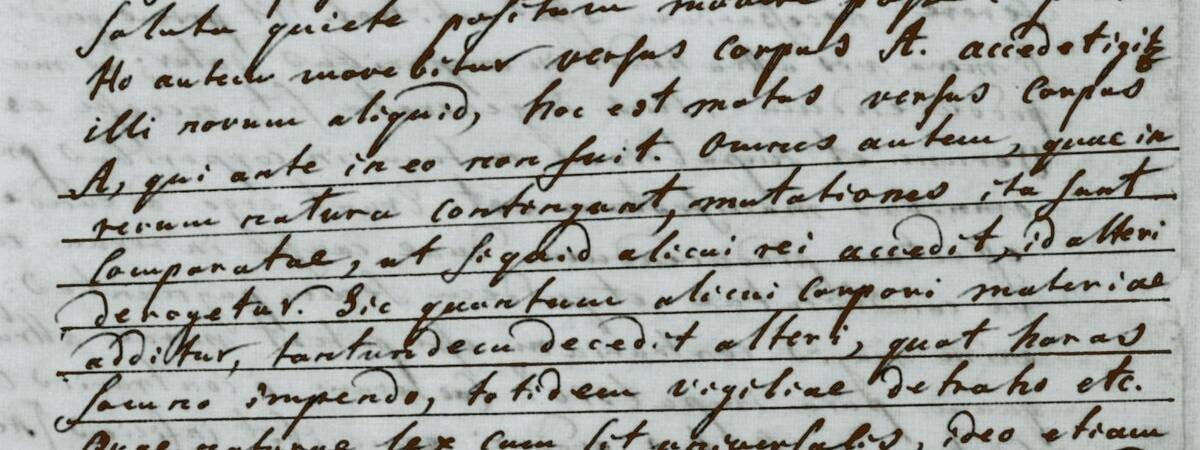 soluta quiete positum movere
Ho autem movebitur versus corpus A. accedet igit
illi novum aliquid, hoc est motus versus corpus
A, qui ante in eo non fuit. Omnes autem, quae in
rerum natura contingunt, mutationes ita sunt
comparatae, ut siquid alicui rei accedit, id alteri
derogetur. Sic quantum alicui corpori materiae
additur, tantundem decedit alteri, quot horas
somno impendo, totidem vigiliae detraho etc.
Quae naturae lex cum sit universalis, ideo etiam